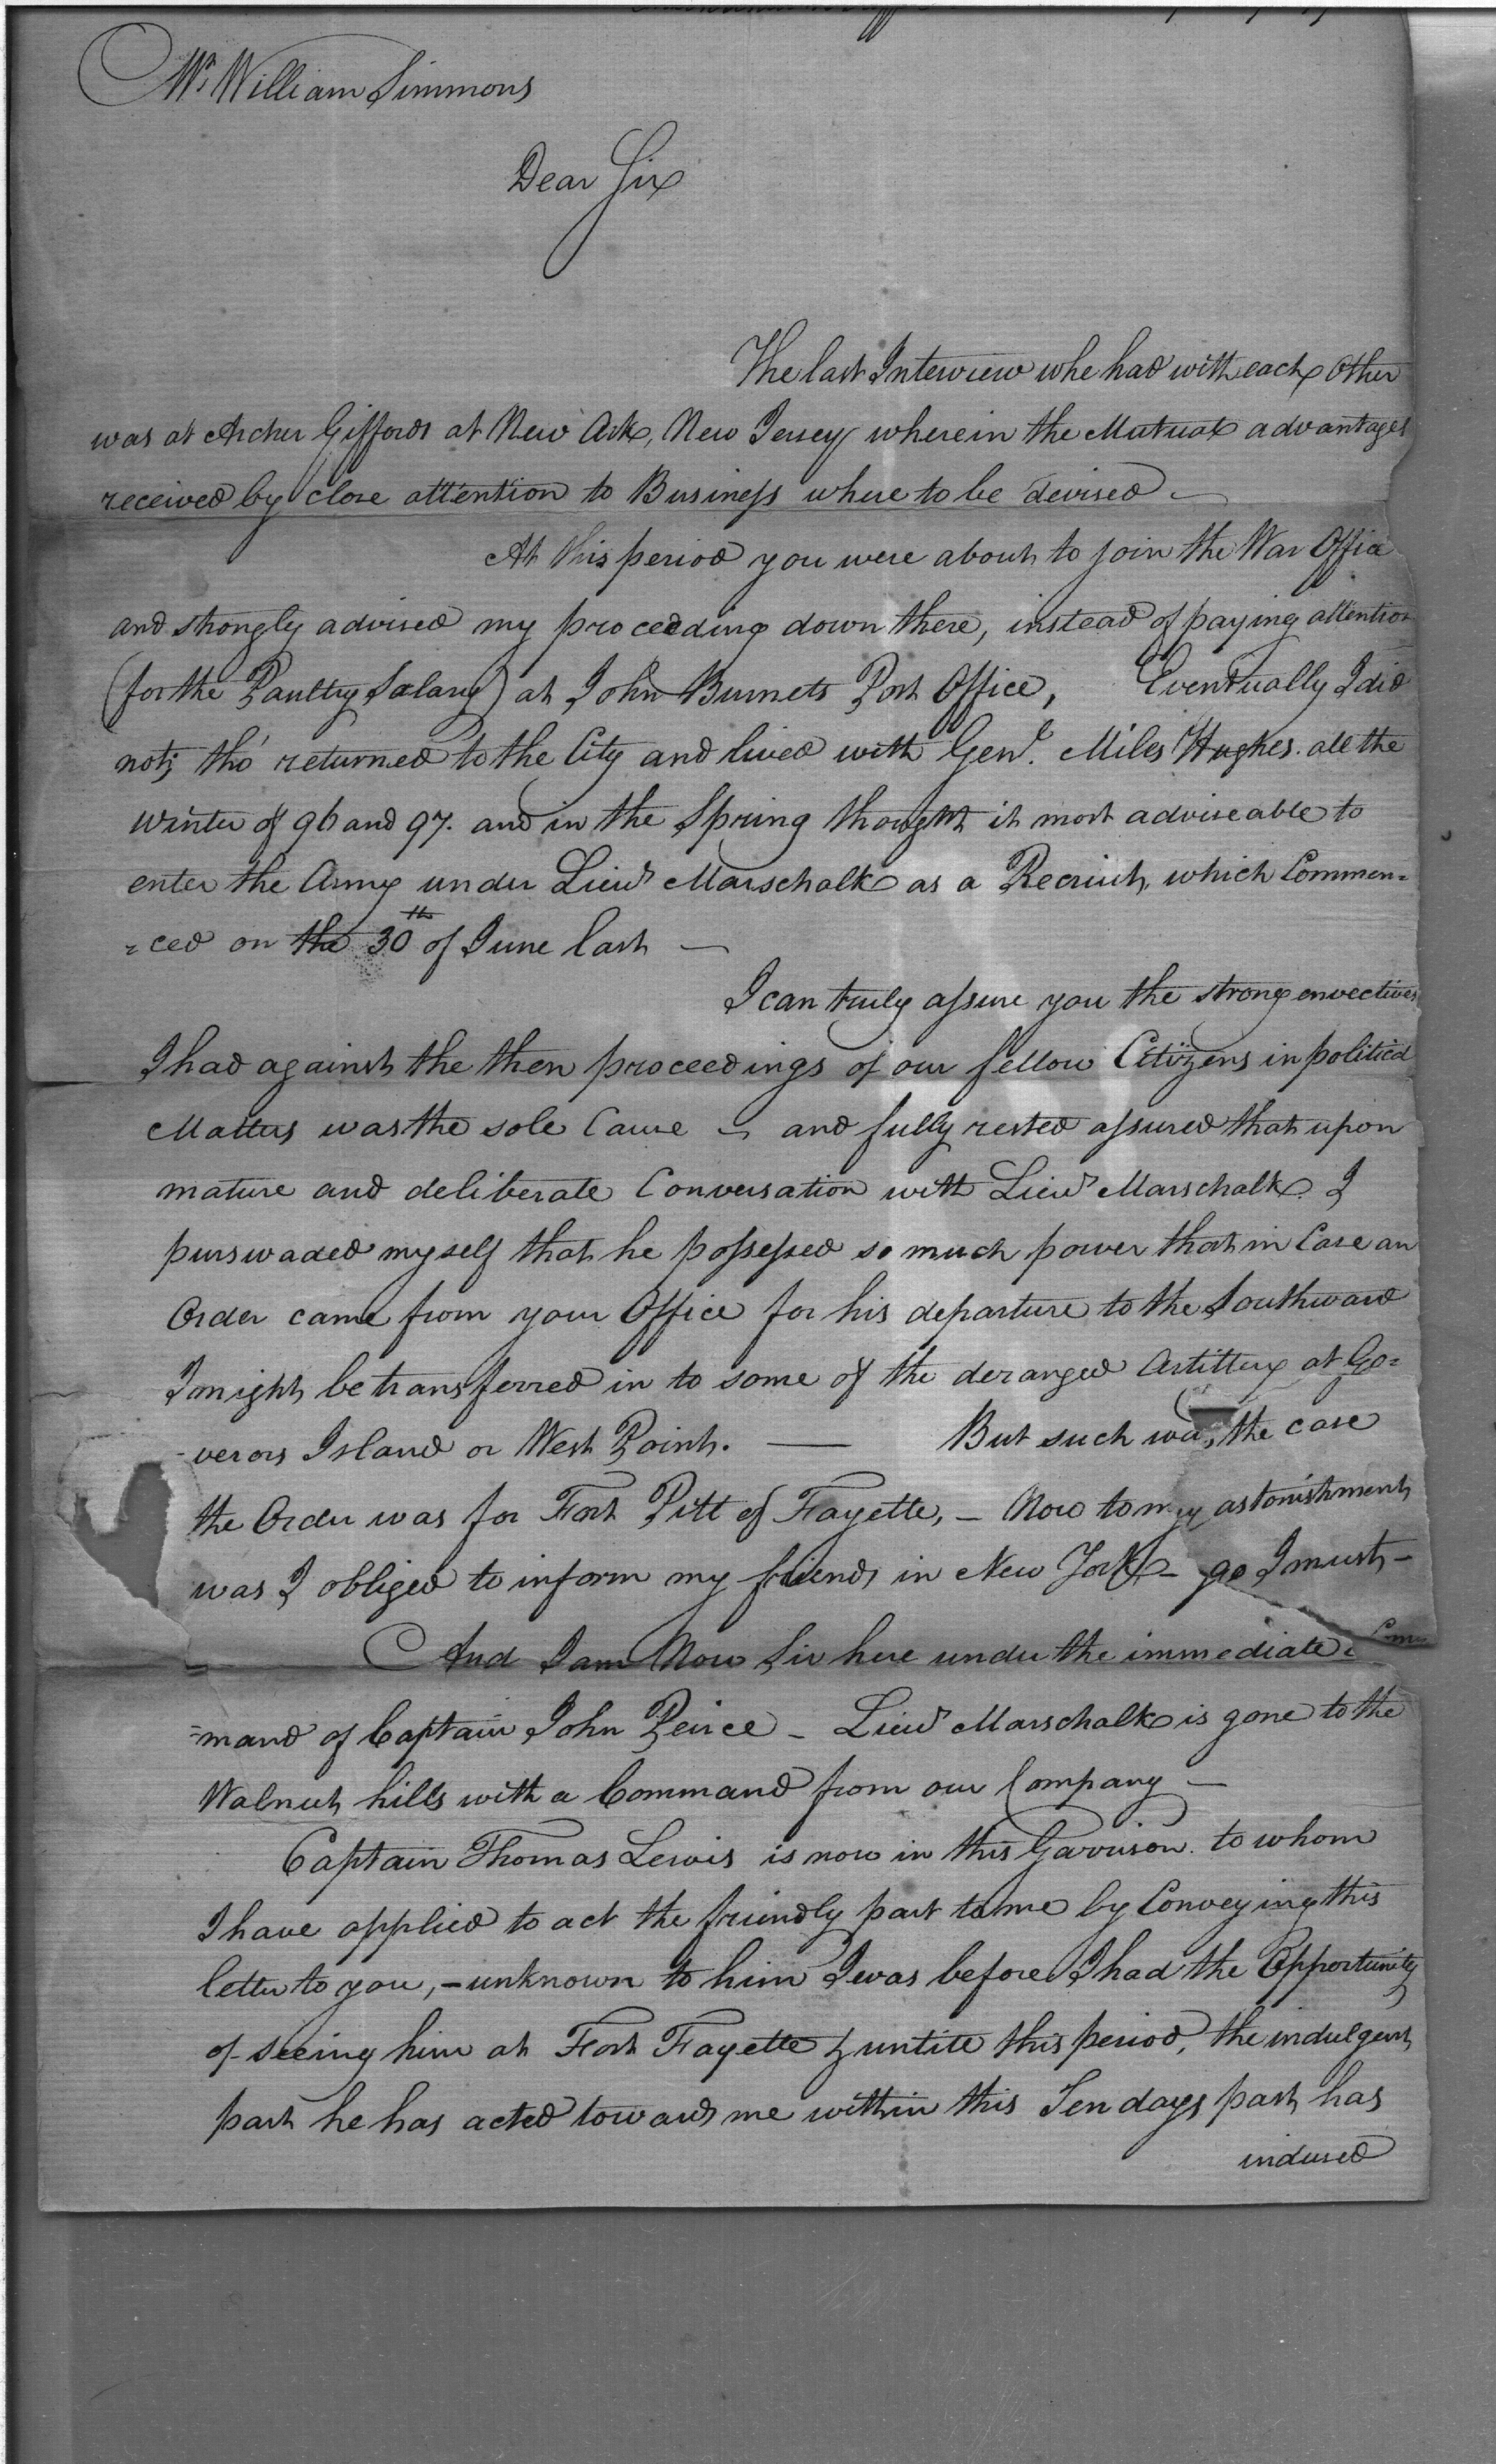 Mr William Simmons
Dear Sir
The last Interview whe had with each Other
was at Archer Giffords at New Ark, New Jersey wherein the Mutual advantages
received by close attention to Business where to be devised —
At this period you were about to join the War Office
and strongly advised my proceeding down there, instead of paying attention
(for the Paultry Salary) at John Burnets Post Office, Eventually I did
not; tho' returned to the City and lived with Genl. Miles Hughes. all the
winter of 96 and 97. and in the Spring thought it most adviseable to
enter the Army under Lieut Marschalk as a Recruit, which Commen=
=ced on the 30th of June last —
I can truly assure you the strong envectives
I had against the then proceedings of our fellow Citizens in political
Matters was the sole Cause — and fully rested assured that upon
mature and deliberate Conversation with Lieut Marschalk I
purswaded myself that he possessed so much power that in Case an
Order came from your Office for his departure to the Southward
I might be transferred in to some of the deranged Artillery at Go=
-verors Island or West Point. — But such was the case
the Order was for Fort Pitt of Fayette, — Now to my astonishment
was I obliged to inform my friends in New York — go I must —
And I am Now Sir here under the immediate Com
=mand of Captain John Peirce — Lieut Marschalk is gone to the
Walnut hills with a Command from our Company —
Captain Thomas Lewis is now in this Garrison. to whom
I have applied to act the friendly part to me by Conveying this
letter to you, — unknown to him I was before I had the Opportunity
of seeing him at Fort Fayette & untill this period, the indulgent
part he has acted towards me within this Ten days past has
indused